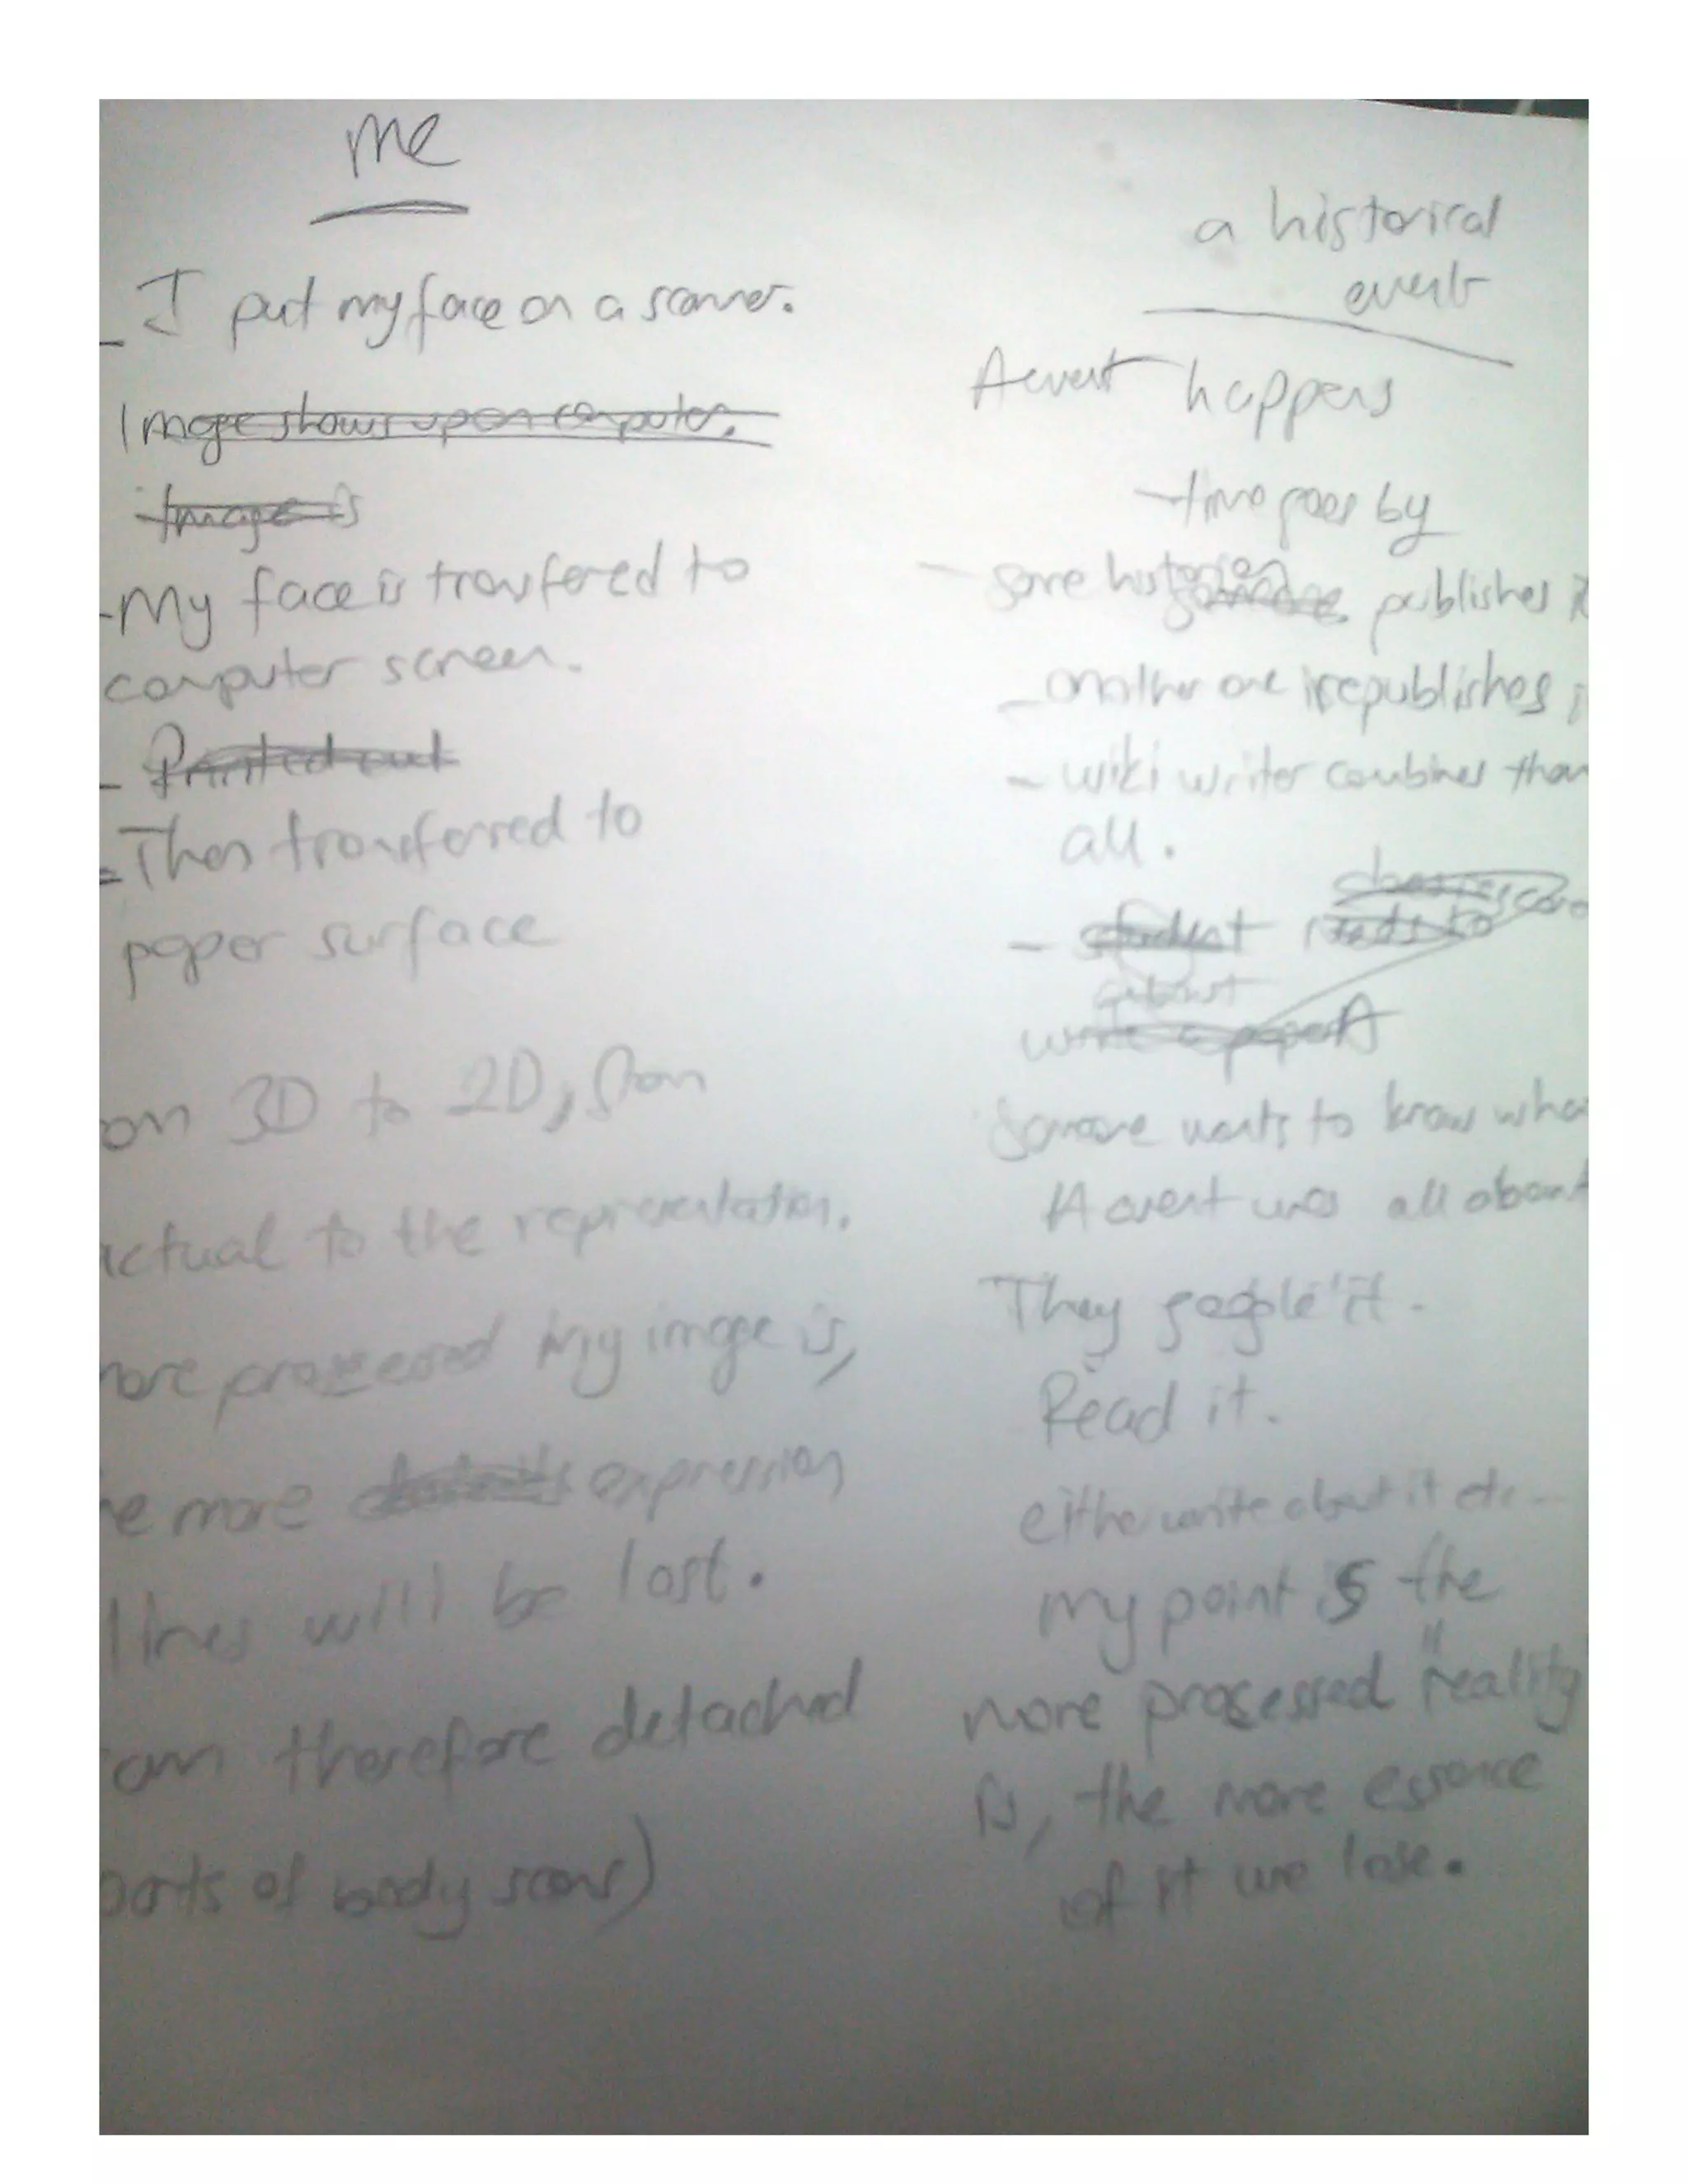 me
- I put my face on a scanner.
Image shows up on computer.
Image is
- My face is transfered to
computer screen.
- Printed out
- Then transferred to
paper surface
om 3D to 2D, from
actual to the representation.
more processed my image is,
e more details expression
lines will be lost.
am therefore detached
parts of body scans)
a historical
event
A event happens
- time goes by
- some historian someone publishes it
- another one republishes i
- wiki writer combines them
all.
- student needs to
write a paper A
Someone wants to know wha
A event was all about
They google it.
Read it.
either write about it etc...
my point is the
more processed "reality
is, the more essence
of it we lose.